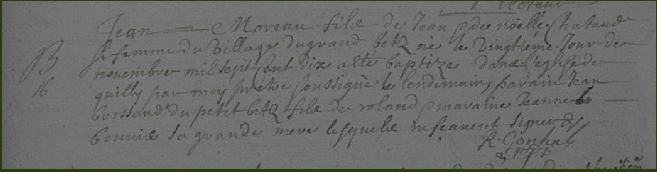 Jean Moreau fils de Jean & de noelle chataud
sa femme du village du grand betz né le vingtieme Jour de
B novembre mil sept cent dix a été baptizé dans l'eglise de
16 quilly par moy pretre soussigné le lendemain, parain Jean
brossaud du petit betz fils de roland & maraine Jeanne
sa grande mere lesquels ne scavent signer
R. Gonhal